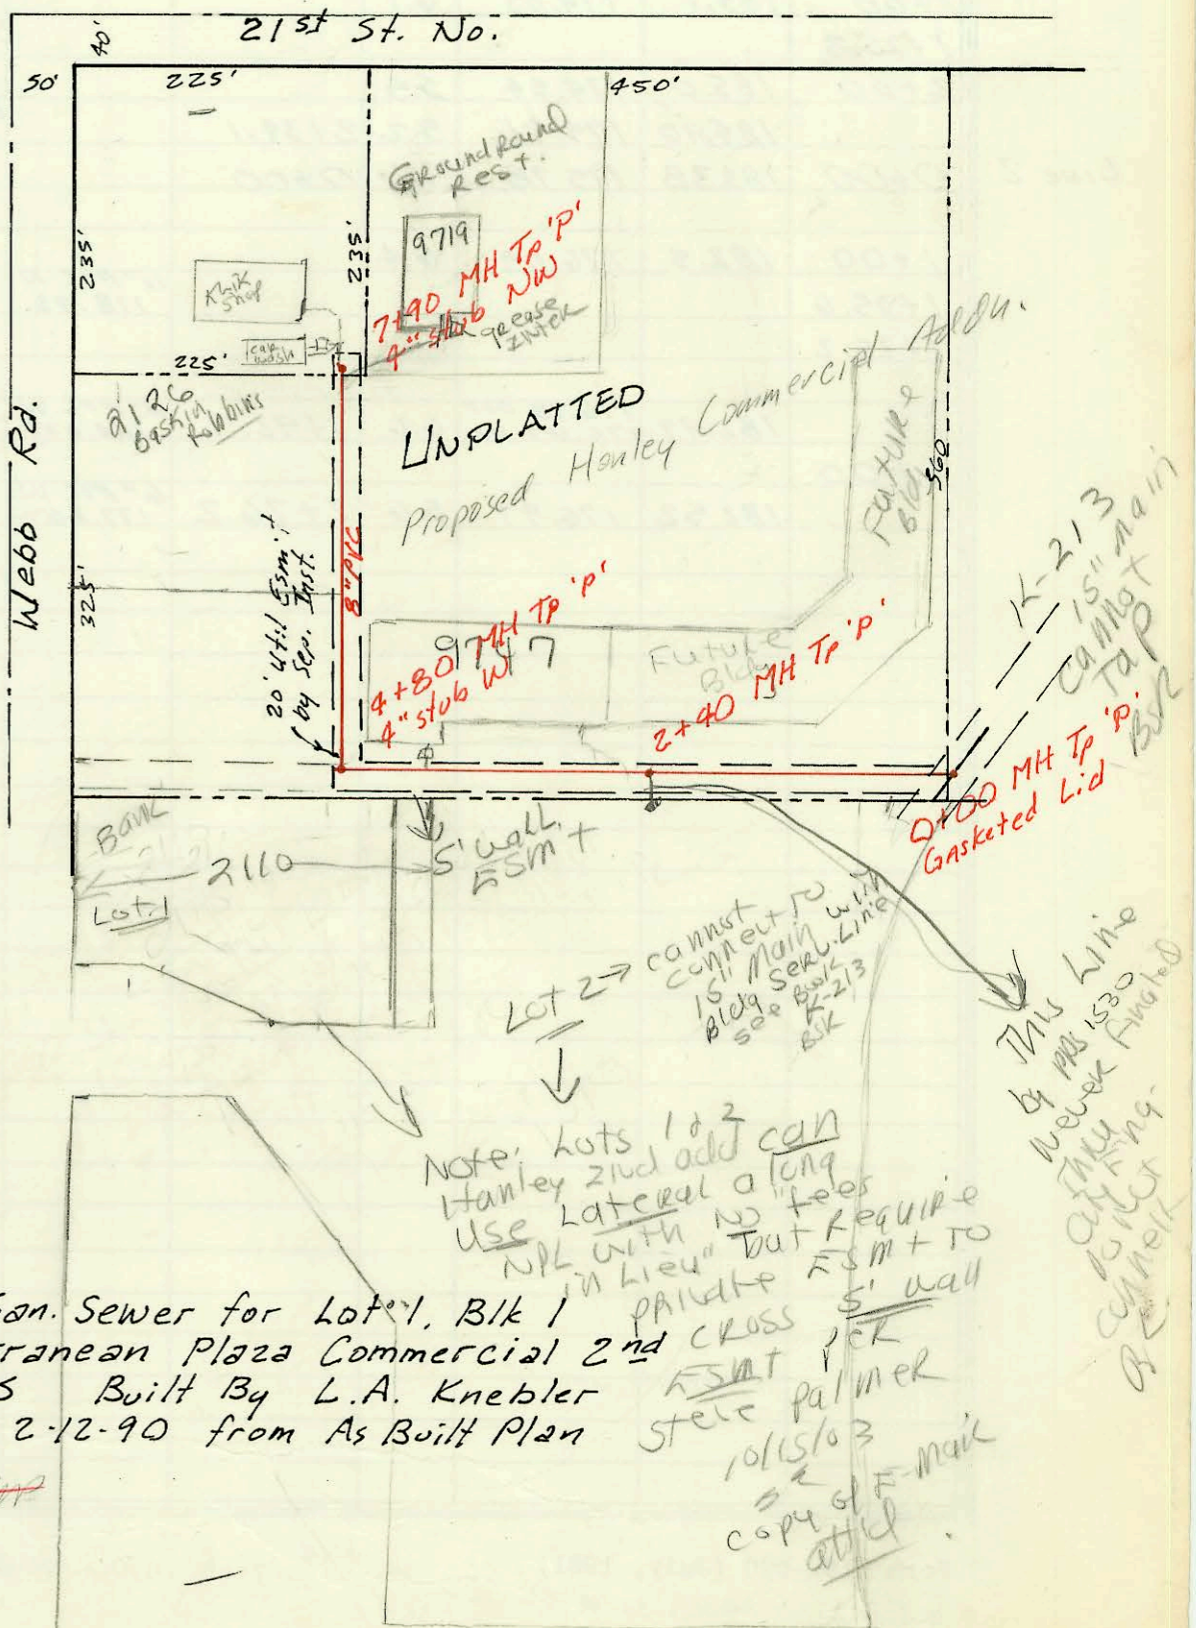 21st St. No.
40'
50'
225'
450'
Ground Round
Rest.
9719
235'
235'
Kwik
Shop
car
wash
7+90 MH Tp 'P'
4" stub NW
grease
225'
2126
Baskin
Robbins
UNPLATTED
Proposed Henley Commercial Addn.
Future
Bldg
560
Webb Rd.
325'
20' Util Esm't
by Sep. Inst.
8" PVC
4+80 MH Tp 'P'
4" stub W
9747
Future
Bldg
2+40 MH Tp 'P'
K-213
15" main
cannot
Tap
BSK
0+00 MH Tp 'P'
Gasketed Lid
Bank
2110
Lot 1
5' wall
ESMT
Lot 2 → cannot
connect to
15" Main with
Bldg Serv. Line
see
K-213
BSK
This Line
by PPS 1530
never finaled
thru
City Eng.
Do Not
connect
BSK
Note: Lots 1 & 2
Hanley 2nd add can
use Lateral along
NPL with No "fees
in Lieu" but require
private ESMT to
cross 5' wall
ESMT per
Steve Palmer
10/15/03
copy of E-Mail
att'd
an. Sewer for Lot 1, Blk 1
rranean Plaza Commercial 2nd
S Built By L.A. Knebler
2-12-90 from As Built Plan